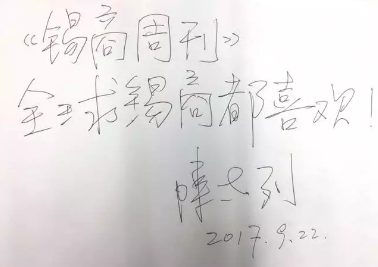 《锡商周刊》
全球锡商都喜欢!
陳志列
2017.9.22.